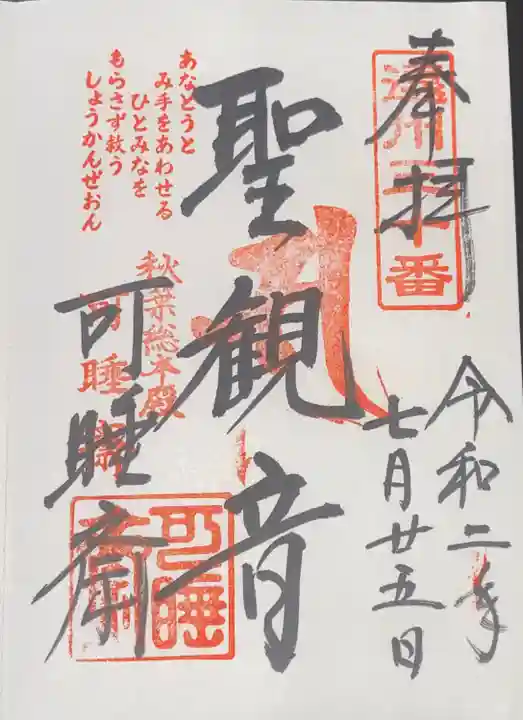 奉拝
遠州三十三番
令和二年
七月廿五日
聖観音
あなとうと
み手をあわせる
ひとみなを
もらさず救う
しょうかんぜおん
秋葉総本殿
可睡齋
可睡斎
可睡齋